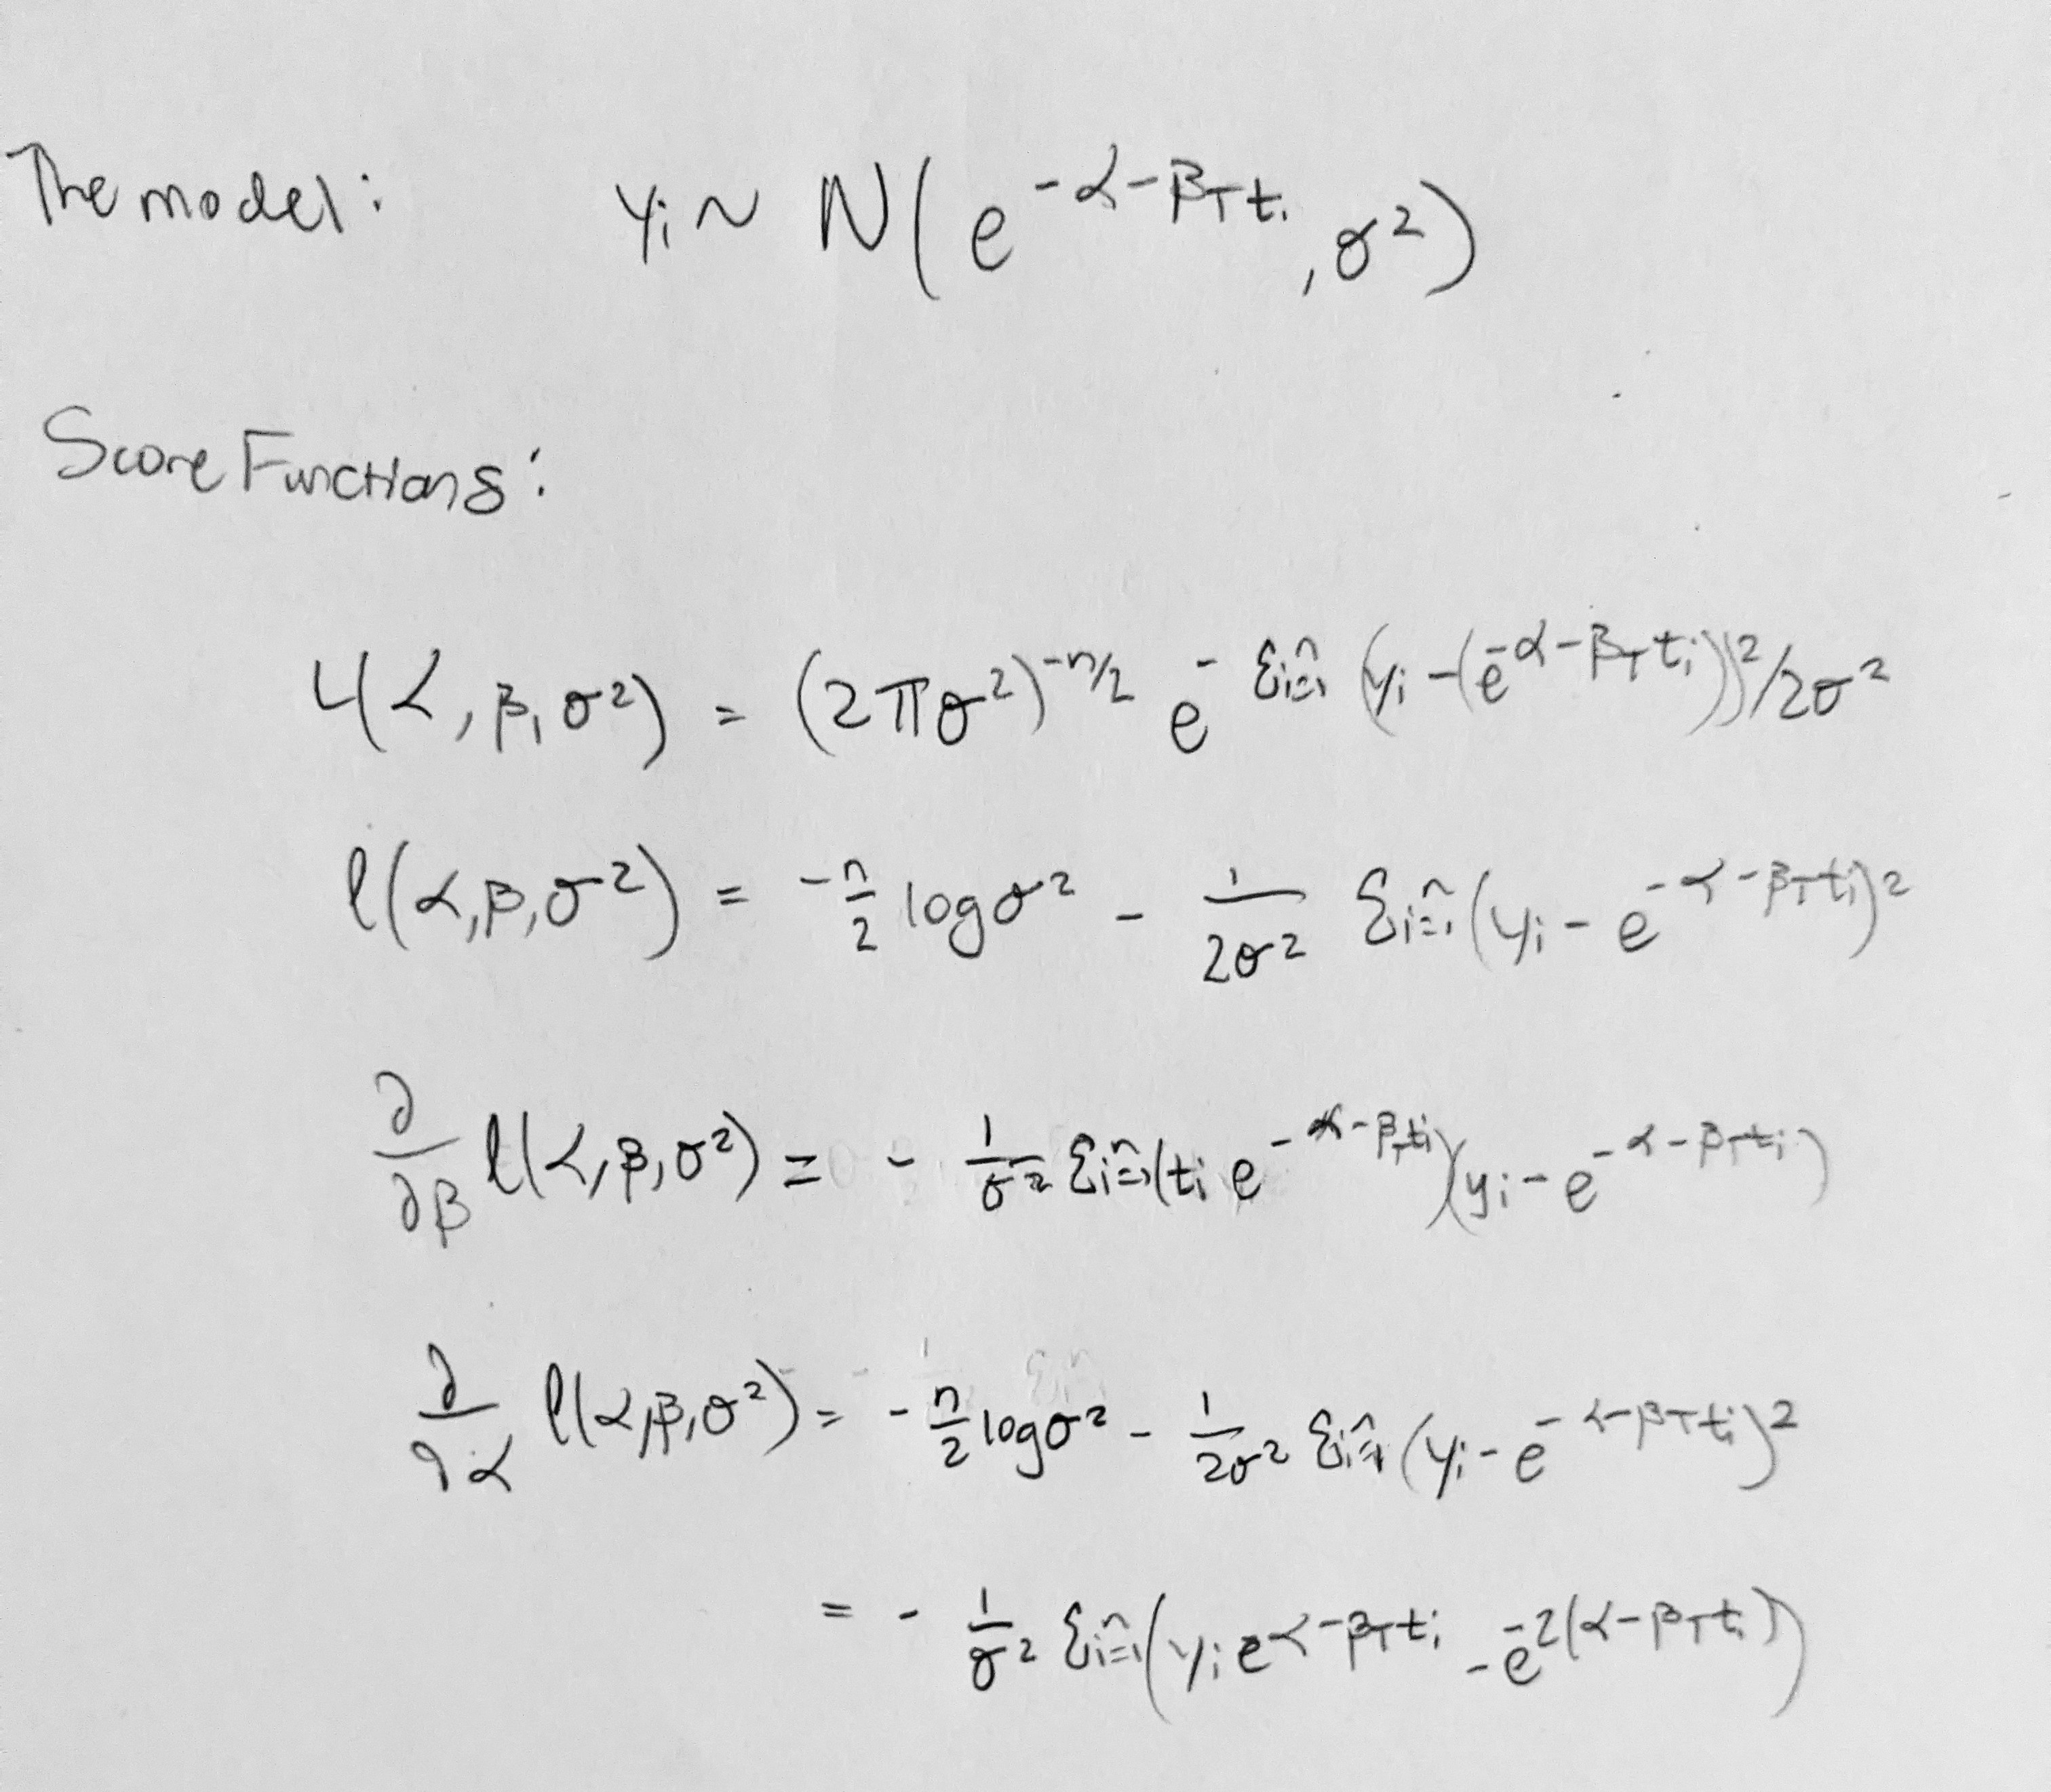 The model: yᵢ ~ N(e^{-α-β_T tᵢ}, σ²)
Score Functions:
L(α, β, σ²) = (2πσ²)^{-n/2} e^{-Σᵢ₌₁ⁿ (yᵢ-(e^{-α-β_T tᵢ}))²/2σ²}
l(α,β,σ²) = -n/2 log σ² - 1/2σ² Σᵢ₌₁ⁿ (yᵢ - e^{-α-β_T tᵢ})²
∂/∂β l(α,β,σ²) = - 1/σ² Σᵢ₌₁ⁿ (tᵢ e^{-α-β_T tᵢ})(yᵢ - e^{-α-β_T tᵢ})
∂/∂α l(α,β,σ²) = - n/2 log σ² - 1/2σ² Σᵢ₌₁ⁿ (yᵢ - e^{-α-β_T tᵢ})²
= - 1/σ² Σᵢ₌₁ⁿ (yᵢ e^{α-β_T tᵢ} - e^{-2(α-β_T tᵢ)})